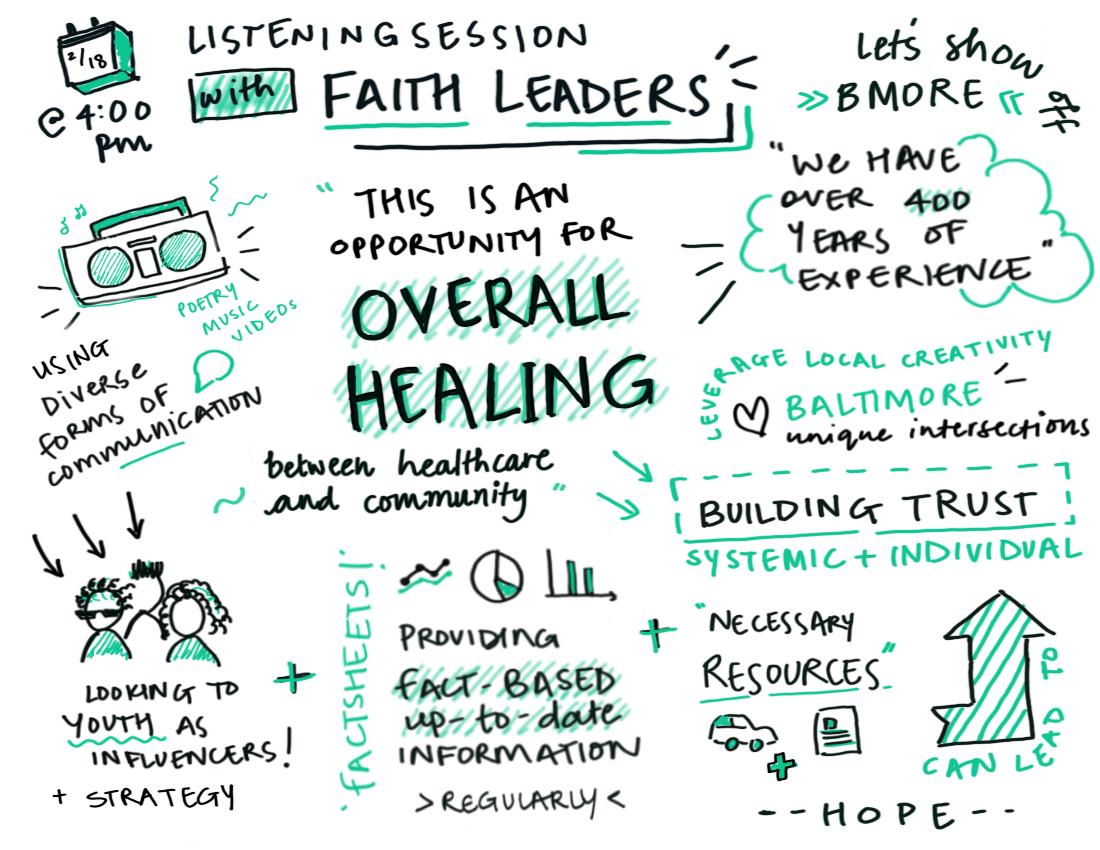 2/18
@ 4:00
pm
LISTENING SESSION
with FAITH LEADERS
Let's show
>> BMORE <<
off
"WE HAVE
OVER 400
YEARS OF
EXPERIENCE"
POETRY
MUSIC
VIDEOS
USING
DIVERSE
FORMS OF
communication
"THIS IS AN
OPPORTUNITY FOR
OVERALL
HEALING
between healthcare
~ and community"
LEVERAGE LOCAL CREATIVITY
BALTIMORE
unique intersections
BUILDING TRUST
SYSTEMIC + INDIVIDUAL
LOOKING TO
YOUTH AS
INFLUENCERS!
+ STRATEGY
+
FACTSHEETS!
PROVIDING
FACT-BASED
up-to-date
INFORMATION
>REGULARLY<
+
"NECESSARY
RESOURCES"
+
CAN LEAD TO
--HOPE--